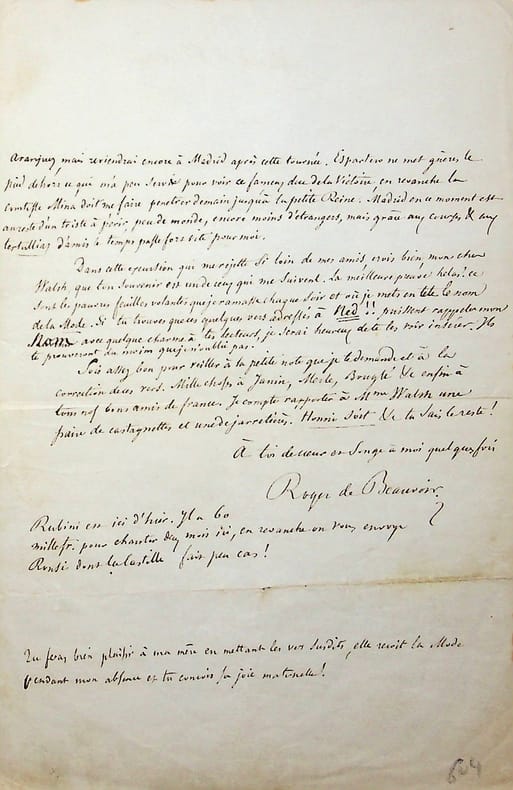 Aranjuez mais reviendrai encore à Madrid après cette tournée. Espartero ne met guères le
pied dehors ce qui m'a peu servi pour voir ce fameux duc de la Victoire, en revanche la
comtesse Mina doit me faire pénétrer demain jusqu'à la petite Reine. Madrid en ce moment est
au reste d'un triste à périr, peu de monde, encore moins d'étrangers, mais grâce aux courses & aux
tertullias d'amis le temps passe fort vite pour moi.
Dans cette excursion qui me rejette si loin de mes amis crois bien mon cher
Walsh que ton souvenir est un de ceux qui me suivent. La meilleure preuve helas! ce
sont les pauvres feuilles volantes que je ramasse chaque soir et où je mets en tête le nom
de la Mode. Si tu trouves que ces quelques vers adressés à Ned!! puissent rappeler mon
nom avec quelque charme à tes lecteurs, je serai heureux de te les voir insérer. Ils
te prouveront du moins que je n'oublie pas.
Sois assez bon pour veiller à la petite note que je te demande et à la
correction de ces vers. Mille choses à Janin, Merle, & enfin à
tous nos bons amis de france. Je compte rapporter à Mme Walsh une
paire de castagnettes et une de jarretières. Honnie soit & tu sais le reste!
À toi de cœur et songe à moi quelquefois
Roger de Beauvoir
Rubini est ici d'hier. Il a 60
mille fr. pour chanter deux mois ici, en revanche on vous envoye
Ronsi dont la Castille fait peu cas!
Tu feras bien plaisir à ma mère en mettant les vers susdits, elle reçoit la Mode
pendant mon absence et tu conçois sa joie maternelle!
624